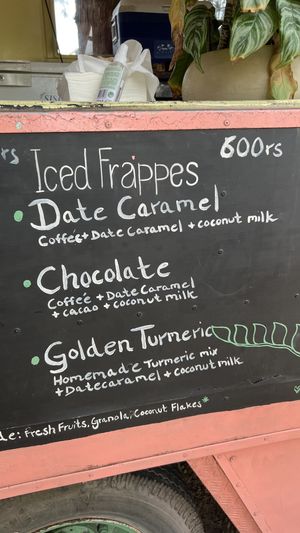 rs Iced Frappes 600rs
• Date Caramel
Coffee + Date Caramel + coconut milk
• Chocolate
Coffee + Date Caramel
+ cacao + coconut milk
• Golden Turmeric
Homemade Turmeric mix
+ Datecaramel + coconut milk
de: Fresh Fruits, Granola, Coconut Flakes*